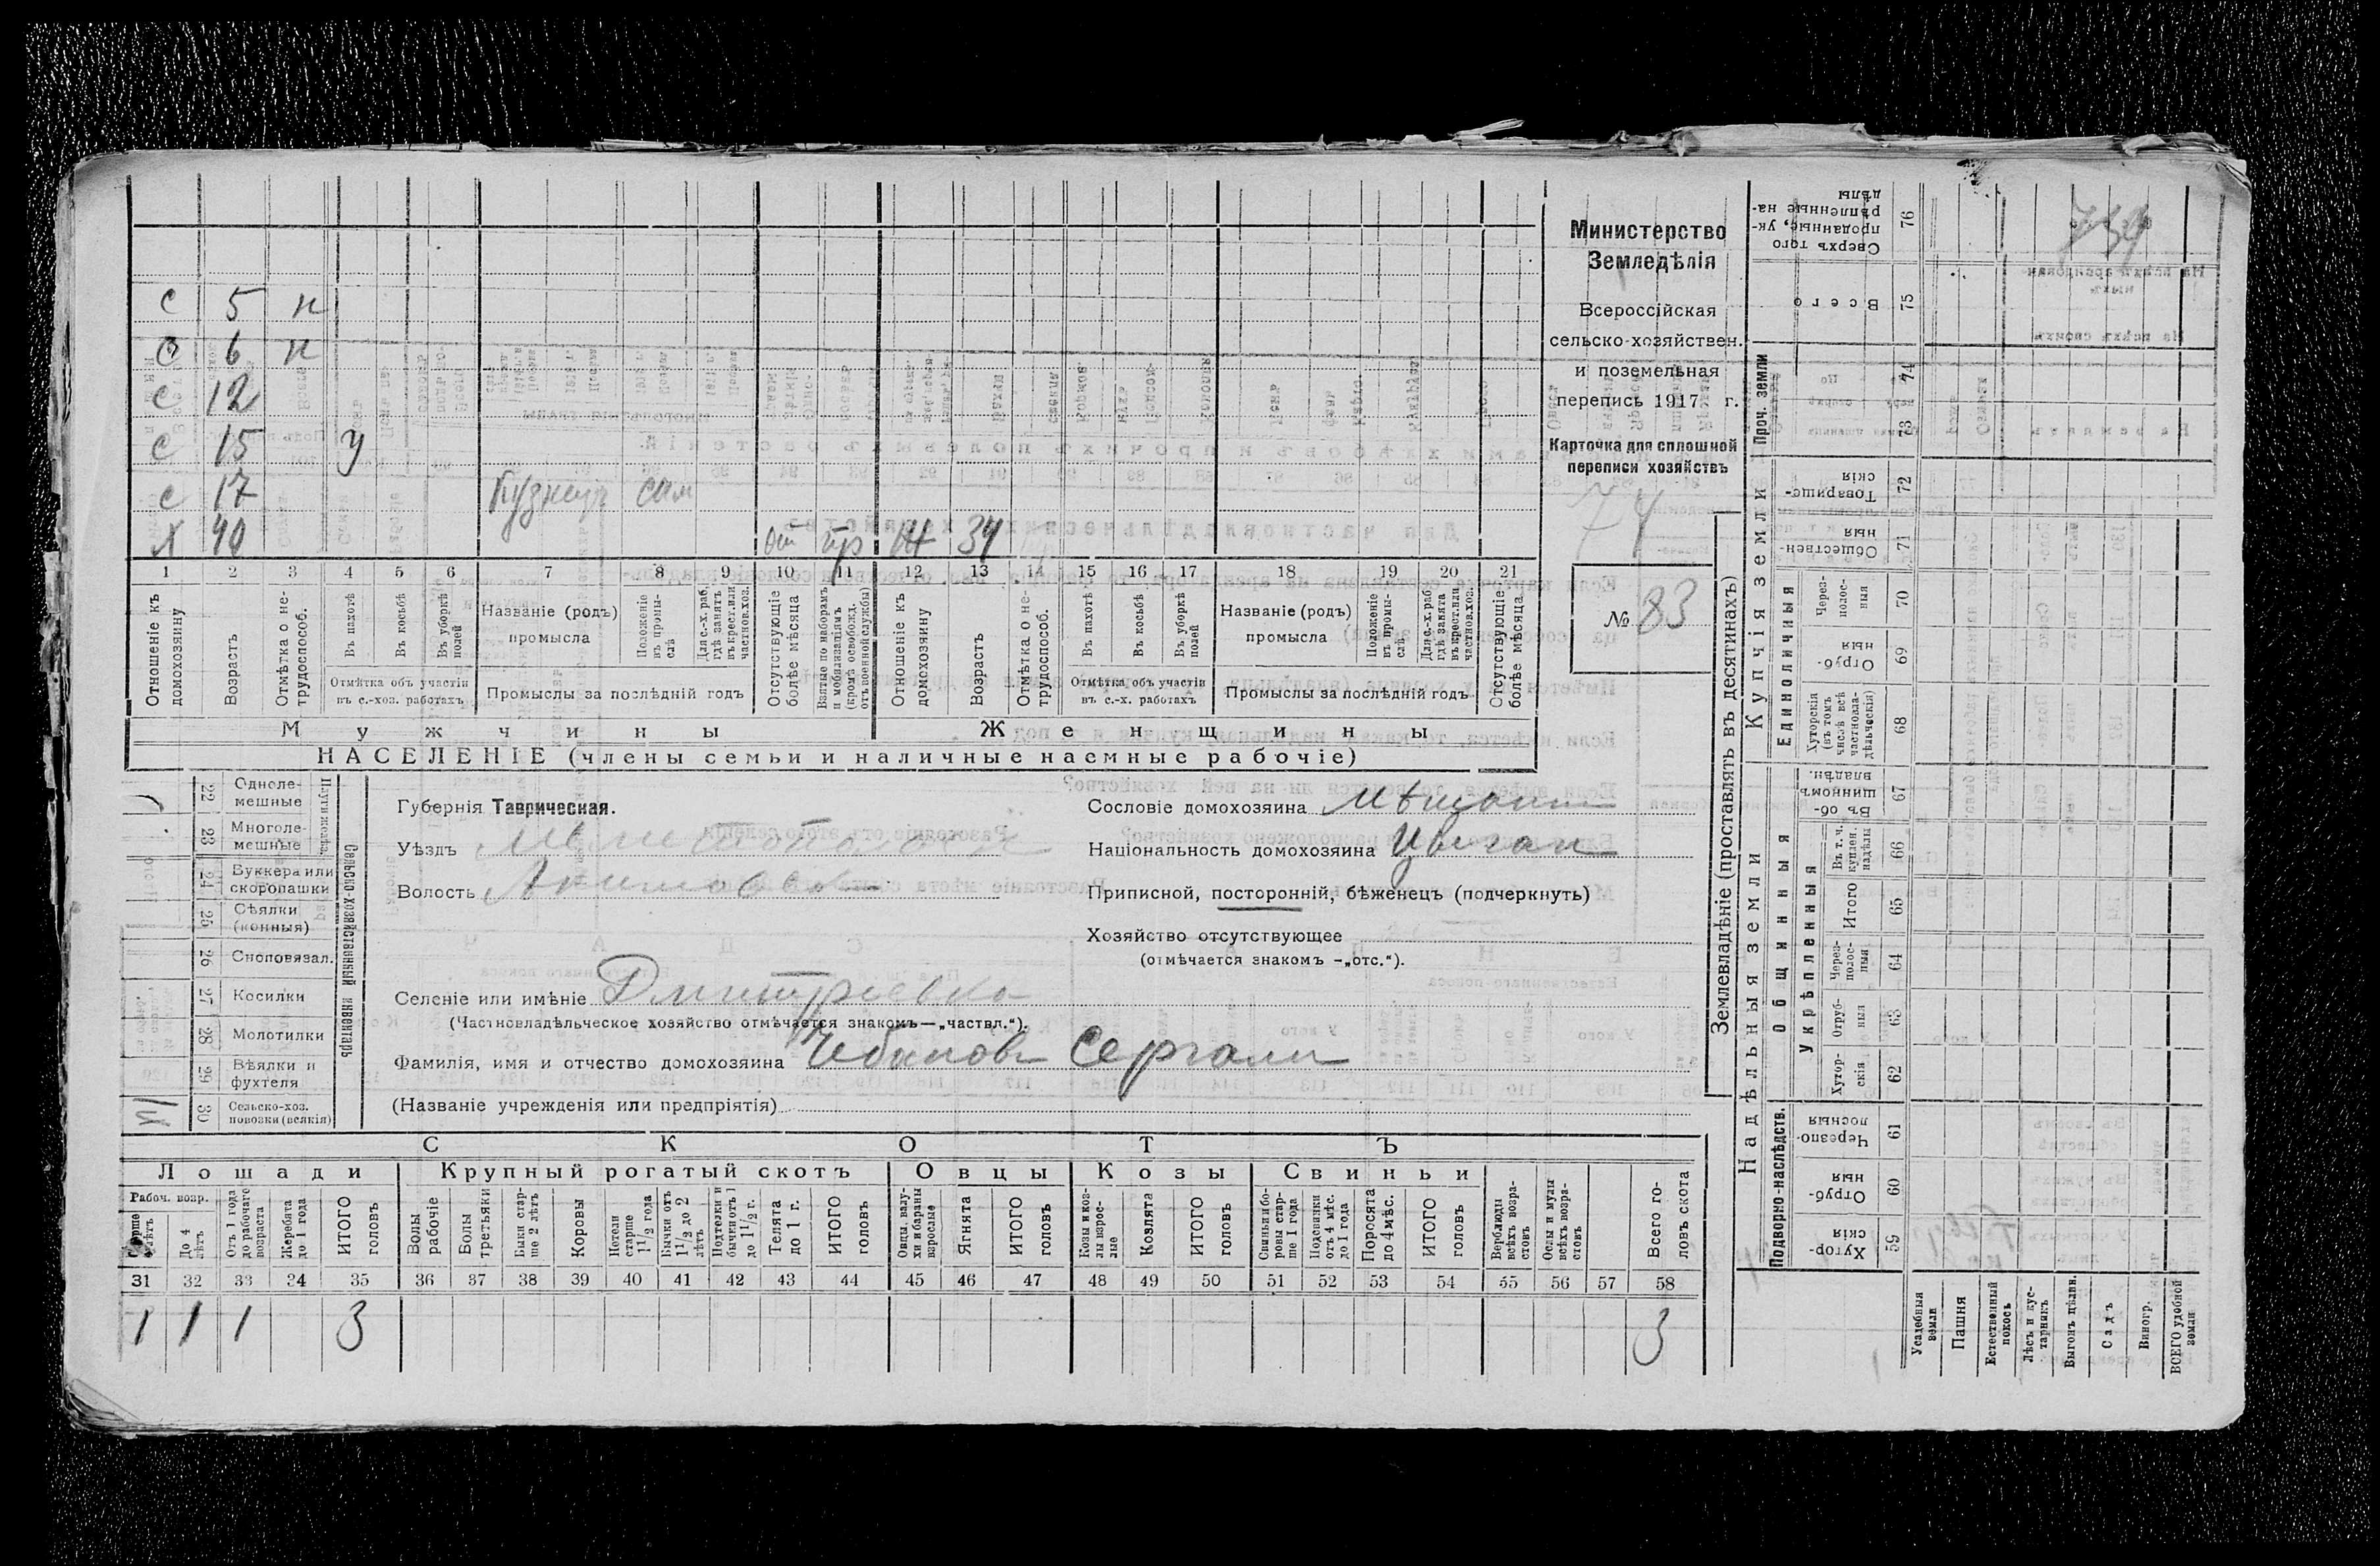 с 5 н
с 6 н
с 12
с 15 у
с 17 кузнецъ сам
х 40 от пр ж 34
1 2 3 4 5 6 7 8 9 10 11 12 13 14 15 16 17 18 19 20 21
Отношеніе къ домохозяину
Возрастъ
Отмѣтка о не-трудоспособ.
Въ пахотѣ
Въ косьбѣ
Въ уборкѣ полей
Отмѣтка объ участіи въ с.-хоз. работахъ
Названіе (родъ) промысла
Положеніе въ промы-слѣ
Для с.-х. раб. гдѣ занятъ въ крест. или частнов. хоз.
Промыслы за послѣдній годъ
Отсутствующіе болѣе мѣсяца
Взятые по наборамъ и мобилизаціямъ (кромѣ освобожд. отъ военной службы)
Отношеніе къ домохозяину
Возрастъ
Отмѣтка о не-трудоспособ.
Въ пахотѣ
Въ косьбѣ
Въ уборкѣ полей
Отмѣтка объ участіи въ с.-х. работахъ
Названіе (родъ) промысла
Положеніе въ промы-слѣ
Для с.-х. раб. гдѣ занята въ крест. или частнов. хоз.
Промыслы за послѣдній годъ
Отсутствующіе болѣе мѣсяца
Мужчины Женщины
НАСЕЛЕНІЕ (члены семьи и наличные наемные рабочіе)
Министерство
Земледѣлія
Всероссійская
сельско-хозяйствен.
и поземельная
перепись 1917 г.
Карточка для сплошной
переписи хозяйствъ
74
№ 83
22 Одноле-мешные
23 Многоле-мешные
24 Буккера или скоропашки
25 Сѣялки (конныя)
26 Сноповязал.
27 Косилки
28 Молотилки
29 Вѣялки и фухтеля
30 Сельско-хоз. повозки (всякія)
Сельско-хозяйственный инвентарь
Губернія Таврическая.
Уѣздъ Мелитопольск
Волость Акимовск
Сословіе домохозяина Мѣщанин
Національность домохозяина Цыган
Приписной, посторонній, бѣженецъ (подчеркнуть)
Хозяйство отсутствующее
(отмѣчается знакомъ –„отс.“).
Селеніе или имѣніе Дмитріевка
(Частновладѣльческое хозяйство отмѣчается знакомъ—„частвл.“).
Фамилія, имя и отчество домохозяина Чебанов
(Названіе учрежденія или предпріятія)
СКОТЪ
Лошади Крупный рогатый скотъ Овцы Козы Свиньи
Рабоч. возр.
До 4 лѣтъ
Отъ 1 года до рабочаго возраста
Жеребята до 1 года
ИТОГО головъ
Волы рабочіе
Волы третьяки
Быки стар-ше 2 лѣтъ
Коровы
Нетели старше 1 1/2 года
Бычки отъ 1 1/2 до 2 лѣтъ
Подтелки и бычки отъ 1 до 1 1/2 г.
Телята до 1 г.
ИТОГО головъ
Овцы, валу-хи и бараны взрослые
Ягнята
ИТОГО головъ
Козы и коз-лы взрос-лые
Козлята
ИТОГО головъ
Свиньи и бо-ровы стар-ше 1 года
Подсвинки отъ 4 мѣс. до 1 года
Поросята до 4 мѣс.
ИТОГО головъ
Верблюды всѣхъ возра-стовъ
Ослы и мулы всѣхъ возра-стовъ
Всего го-ловъ скота
31 32 33 34 35 36 37 38 39 40 41 42 43 44 45 46 47 48 49 50 51 52 53 54 55 56 57 58
1 1 1 3 3
Землевладѣніе (проставлять въ десятинахъ)
Надѣльныя земли Купчія земли Проч. земли
Подворно-наслѣдств.
Общинныя
Укрѣпленныя
Единоличныя
Сверхъ того проданные, ук-рѣпленные на-дѣлы 76
Всего 75
74
73
Товарище-скія 72
Обществен-ныя 71
Через-полос-ныя 70
Отруб-ныя 69
Хуторскія (въ томъ числѣ всѣ частновла-дѣльческія) 68
Въ об-щинномъ владѣн. 67
Въ т. ч. куплен. надѣлы 66
Итого 65
Через-полос-ныя 64
Отруб-ныя 63
Хутор-скія 62
Черезпо-лосныя 61
Отруб-ныя 60
Хутор-скія 59
Усадебныя земли
Пашня
Естественный покосъ
Лѣсъ и кус-тарникъ
Выгонъ цѣлин.
Садъ
Виногр.
ВСЕГО удобной земли
739